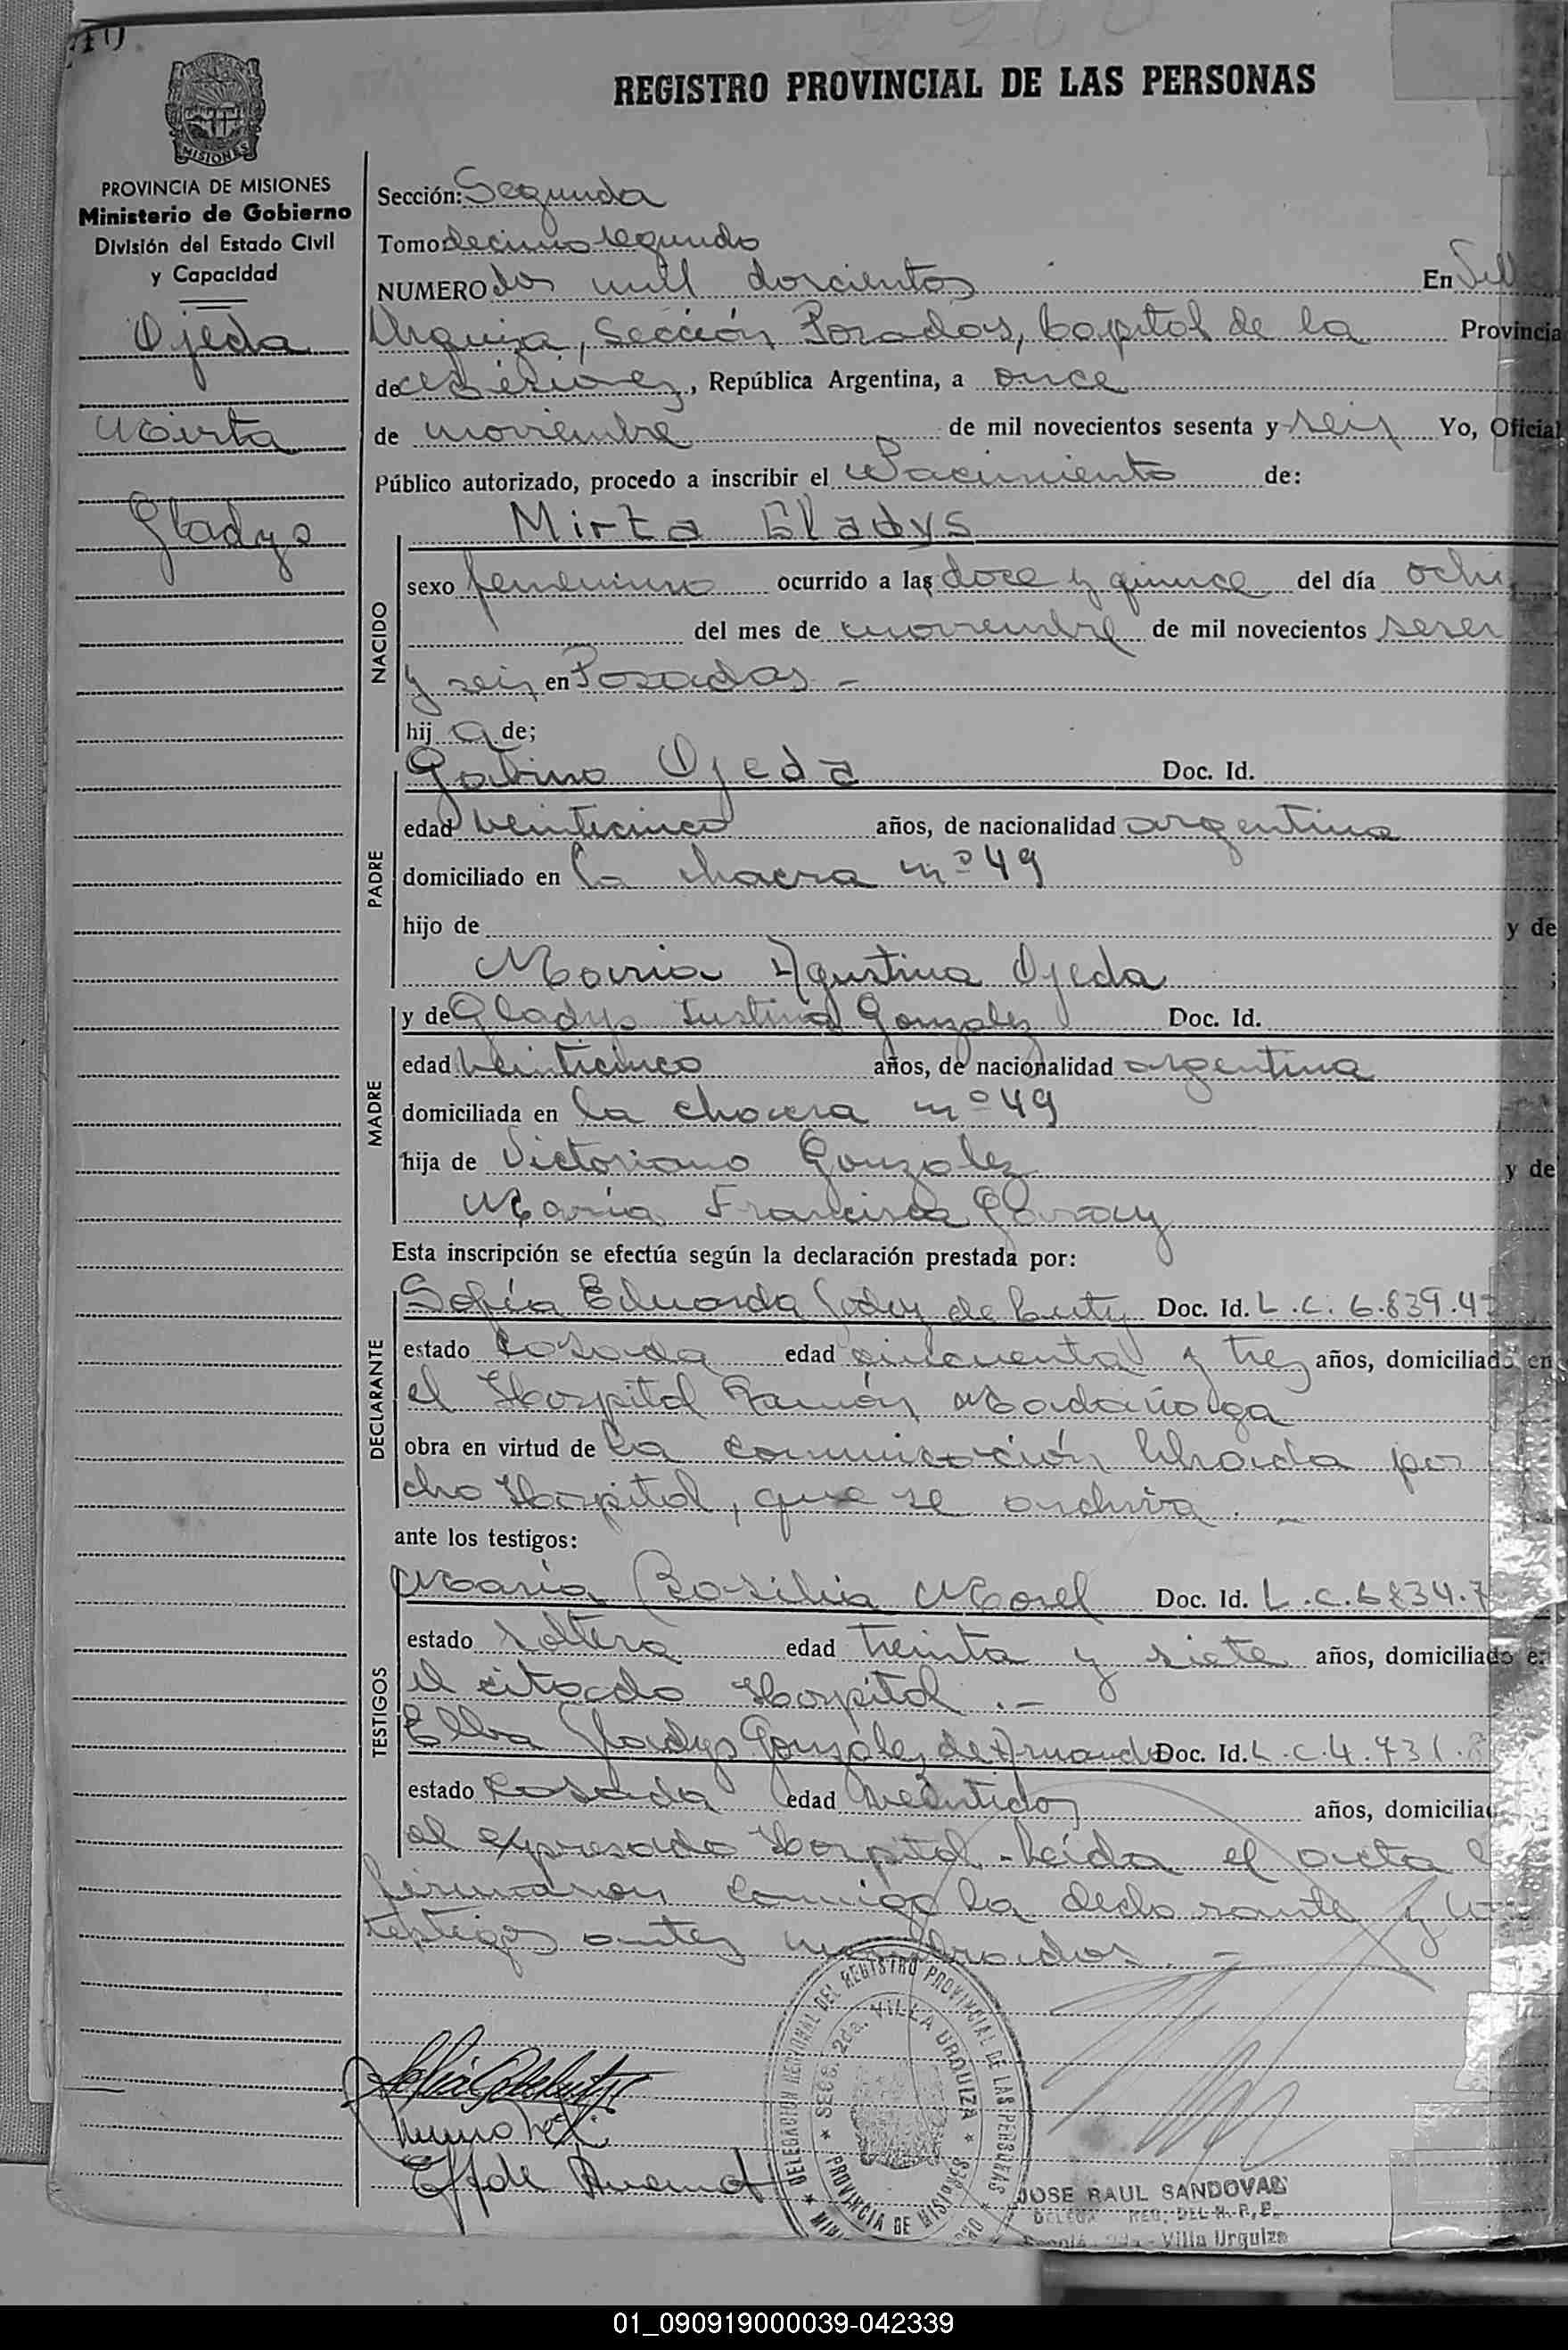 REGISTRO PROVINCIAL DE LAS PERSONAS
MISIONES
PROVINCIA DE MISIONES
Ministerio de Gobierno
División del Estado Civil
y Capacidad
Ojeda
Mirta
Gladys
Sección: Segunda
Tomo decimo segundo
NUMERO dos mil doscientos En Vill
Urquiza, Sección Posadas, Capital de la Provincia
de Misiones, República Argentina, a once
de noviembre de mil novecientos sesenta y seis Yo, Oficial
Público autorizado, procedo a inscribir el Nacimiento de:
NACIDO
Mirta Gladys
sexo femenino ocurrido a las doce y quince del día ocho
del mes de noviembre de mil novecientos sesen
y seis en Posadas -
hij a de;
PADRE
Gabino Ojeda Doc. Id.
edad veinticinco años, de nacionalidad argentina
domiciliado en la chacra nº 49
hijo de y de
Maria Agustina Ojeda ;
MADRE
y de Gladys Justina Gonzalez Doc. Id.
edad veinticinco años, de nacionalidad argentina
domiciliada en la chacra nº 49
hija de Victoriano Gonzalez y de
María Francisca Garay
Esta inscripción se efectúa según la declaración prestada por:
DECLARANTE
Sofía Eduarda Godoy de Doc. Id. L.C. 6.839.4
estado casada edad cincuenta y tres años, domiciliado en
el Hospital Ramón Madariaga
obra en virtud de la comunicación librada por
cho Hospital, que se archiva.-
ante los testigos:
TESTIGOS
María Basilia Morel Doc. Id. L.C. 6834.7
estado soltera edad treinta y siete años, domiciliado e
el citado Hospital.-
Elba Gladys González de Doc. Id. L.C. 4.731.8
estado casada edad veintidos años, domicilia
el expresado Hospital.-Leída el acta l
firmaron conmigo la declarante y lo
testigos antes nombrados.-
DELEGACION REGIONAL DEL REGISTRO PROVINCIAL DE LAS PERSONAS
SECC. 2da. VILLA URQUIZA
PROVINCIA DE MISIONES
JOSE RAUL SANDOVAL
DELEG. REG. DEL R. P. P.
2da - Villa Urquiza
01_090919000039-042339